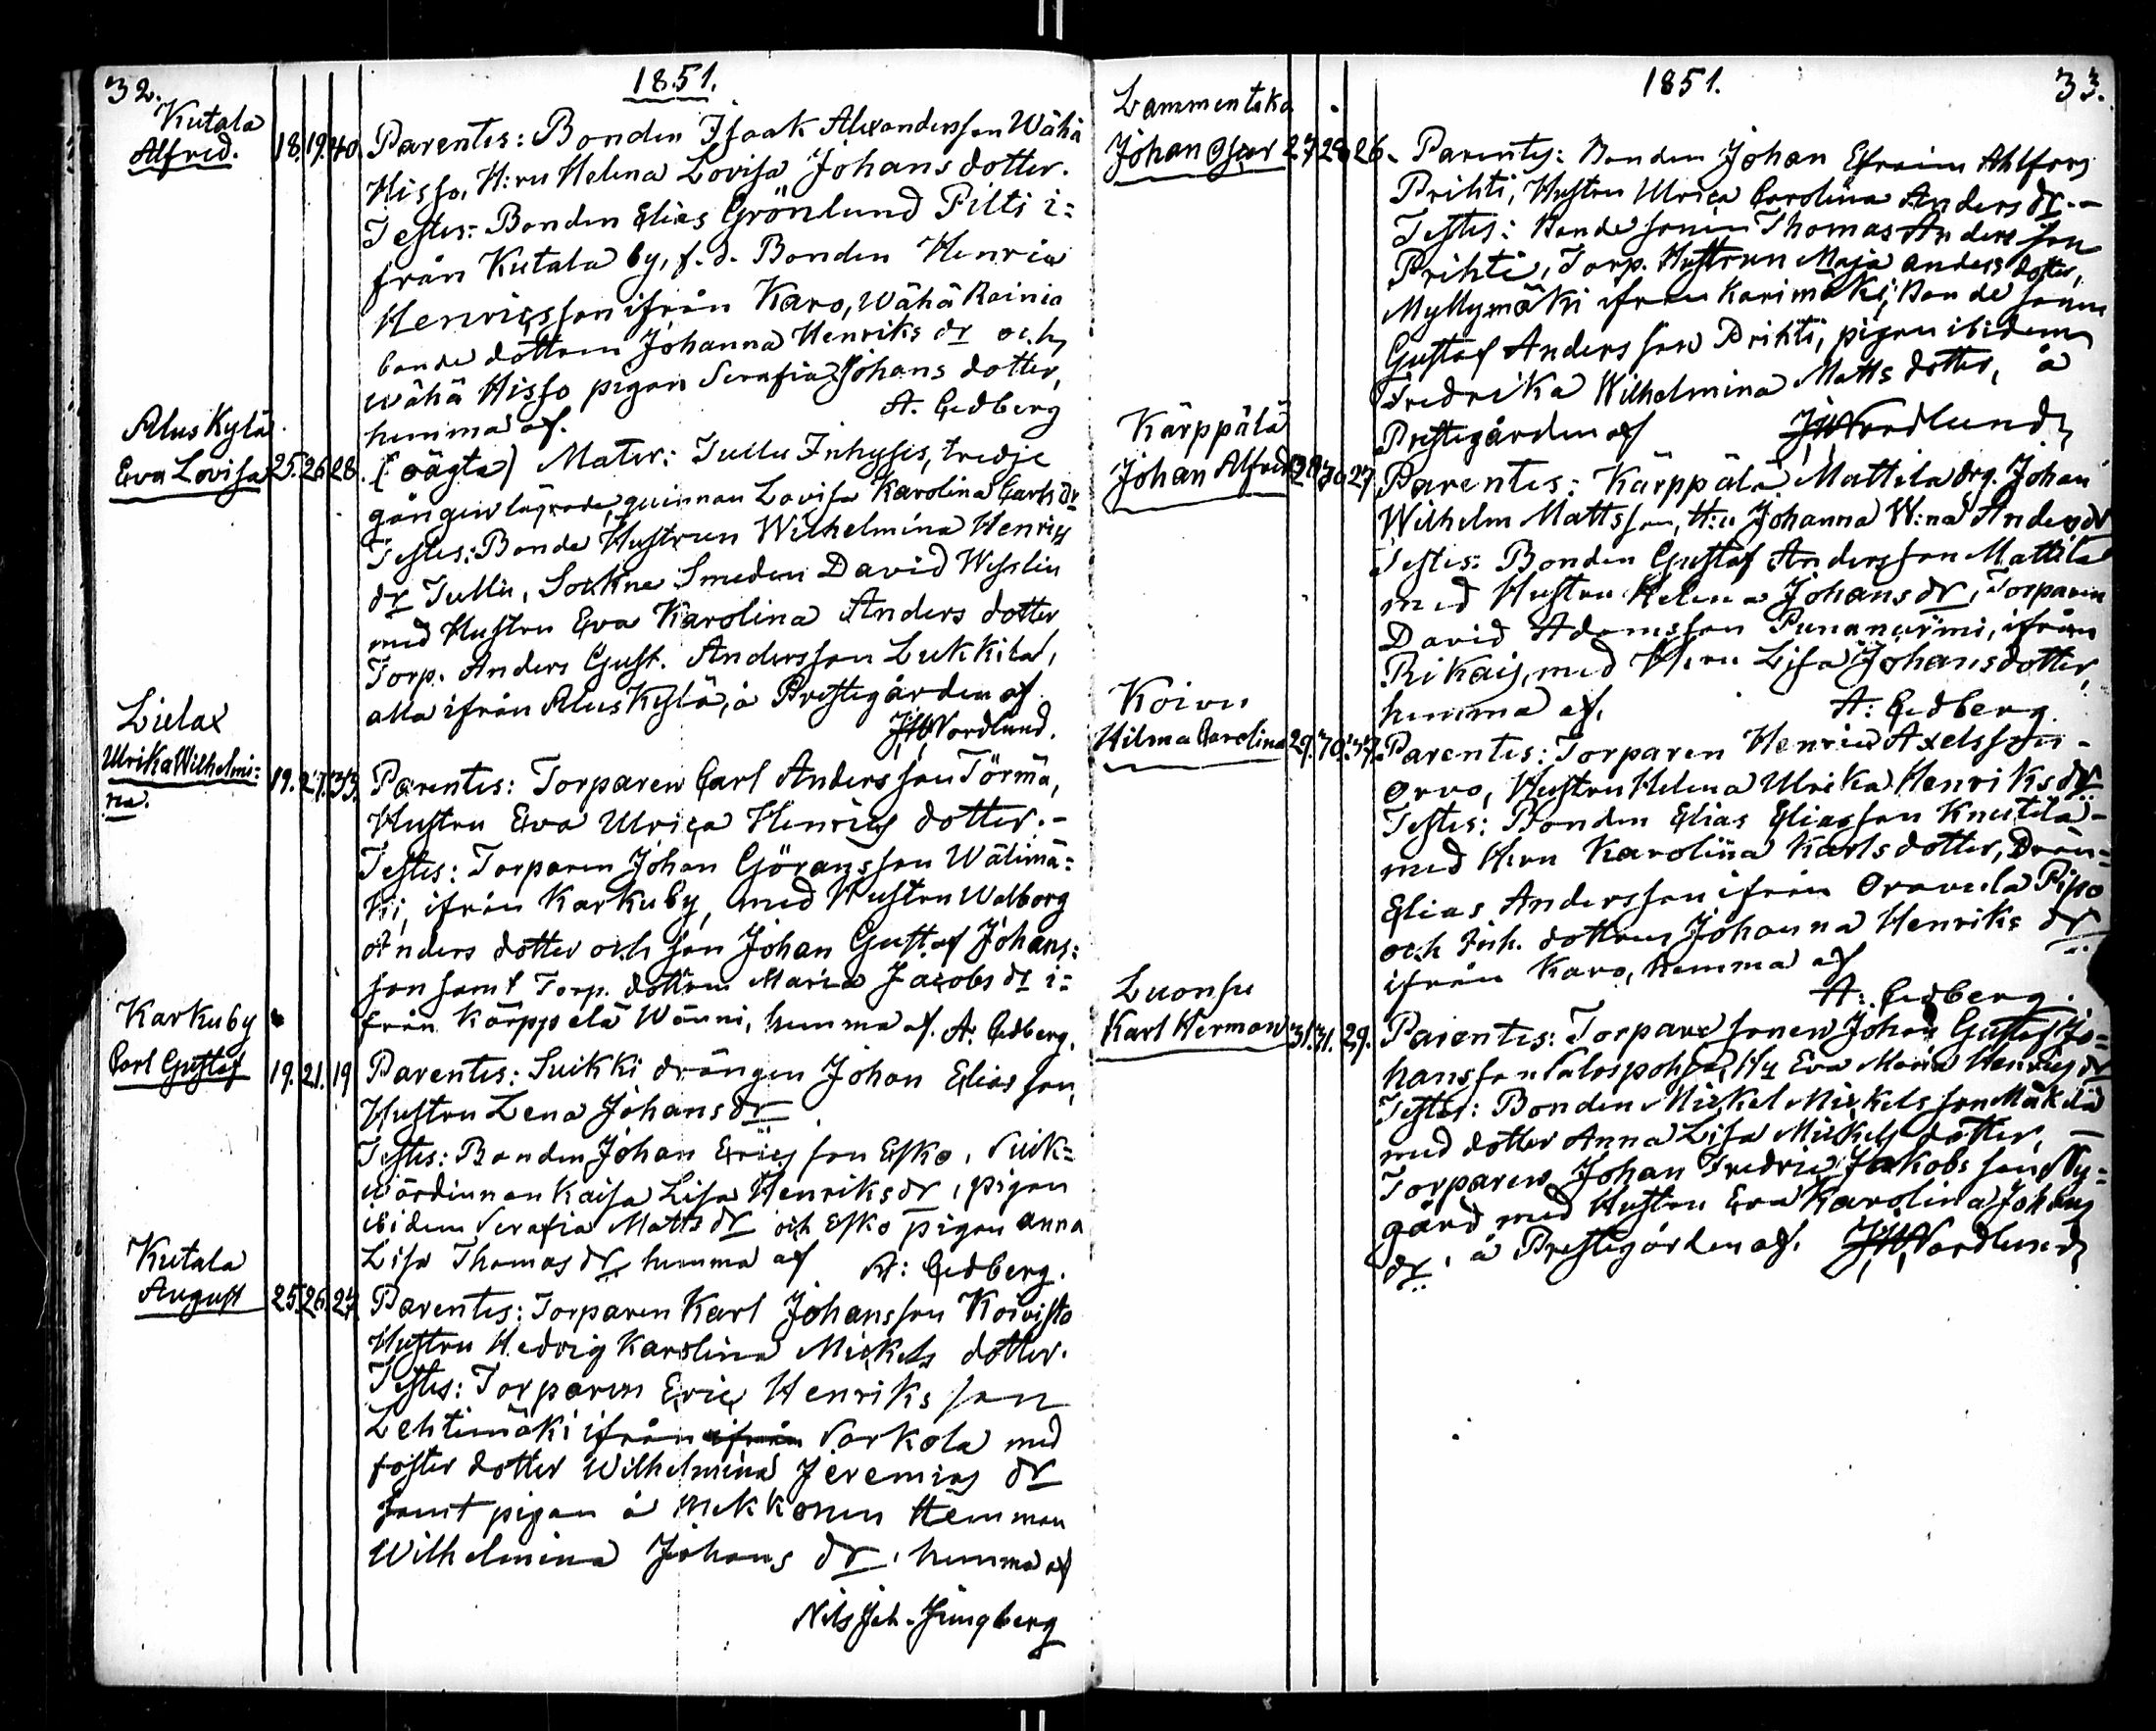 32.
1851.
Kutala
Alfred. 18. 19. 40. Parentes: Bonden Isaak Alexandersson Wähä
Hisso, H:ru Helena Lovisa Johans dotter.
Testes: Bonden Elias Grönlund Pilti i=
från Kutala by, f. d. Bonden Henric
Henricsson ifrån Karo, Wähä Rainio
bonde dottren Johanna Henriks dr och
Wähä Hisso pigan Serafia Johans dotter,
hemma af. A. Cedberg
Aluskylä
Eva Lovisa 25. 26. 28. (oägta) Mater: Tullu Inhyses, tredje
gången lägrade quinnan Lovisa Karolina Carls dr
Testes: Bonde Hustrun Wilhelmina Henrics
dr Tullu, Sockne Smeden David Wesslin
med Hustru Eva Karolina Anders dotter
Torp. Anders Gust. Andersson Lukkila,
alla ifrån Aluskylä, å Prestegården af
JW Nordlund.
Lielax
Ulrika Wilhelmi=
na. 19. 27. 33. Parentes: Torparen Carl Andersson Törmä,
Hustru Eva Ulrica Henrics dotter.-
Testes: Torparen Johan Göransson Wälimä=
ki, ifrån Karkuby, med Hustru Walborg
Anders dotter och son Johan Gustaf Johans=
son samt Torp. dottren Maria Jacobs dr i=
från Kärppälä Wänni, hemma af. A: Cedberg.
Karkuby
Carl Gustaf 19. 21. 19 Parentes: Suikki drängen Johan Eliasson,
Hustru Lena Johans dr
Testes: Bonden Johan Ericsson Esko, Suik=
wärdinnan Kaisa Lisa Henriks dr, pigan
ibidem Serafia Matts dr och Esko pigan Anna
Lisa Thomas dr hemma af A: Cedberg.
Kutala
August 25. 26. 27. Parentes: Torparen Karl Johansson Koivisto
Hustru Hedvig Karolina Mickels dotter.
Testes: Torparen Eric Henriks son
Lehtimäki ifrån ifrån Sarkola med
foster dotter Wilhelmina Jeremias dr
samt pigan å Mekkonen Hemman
Wilhelmina Johans dr, hemma af
Nils Joh. Ljungberg
1851.
33.
Lammentaka
Johan Oscar 27. 28. 26. Parentes: Bonden Johan Efraim Ahlfors
Prihti, Hustru Ulrica Carolina Anders dr.-
Testes: Bonde sonen Thomas Andersson
Prihti, Torp. Hustrun Maja Anders dotter,
Myllymäki ifrån Karimäki, Bonde sonen
Gustaf Andersson Prihti, pigan ibidem
Fredrika Wilhelmina Matts dotter, å
Prestegården af JW Nordlund
Kärppälä
Johan Alfred 28. 30. 27 Parentes: Kärppälä Mattila drg. Johan
Wilhelm Mattsson, H:u Johanna W:na Anders dr
Testes: Bonden Gustaf Andersson Mattila
med Hustru Helena Johans dr, Torparen
David Adamsson Punanurmi, ifrån
Rikais, med H:ru Lisa Johansdotter,
hemma af. A: Cedberg.
Koivu
Hilma Carolina 29. 30. 37. Parentes: Torparen Henric Axelsson -
Orvo, Hustru Helena Ulrika Henriks dr
Testes: Bonden Elias Eliasson Knuutila -
med H:ru Karolina Karls dotter, Drän=
Elias Andersson ifrån Oravula Pipo
och Inh. dottren Johanna Henriks dr
ifrån Karo, hemma af
A: Cedberg.
Luonsu
Karl Herman 31. 31. 29. Parentes: Torpare sonen Johan Gustaf Jo=
hansson Salospohja, Hu Eva Maria Henrics dr
Testes: Bonden Mickel Mickelsson Mäkilä
med dotter Anna Lisa Mickels dotter, -
Torparen Johan Fredric Jakobsson Ny=
gård med Hustru Eva Karolina Johans
dr, å Prestegården af. JW Nordlund